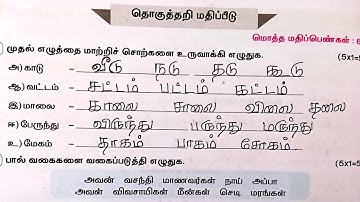 தொகுத்தறி மதிப்பீடு
மொத்த மதிப்பெண்கள் : 6
முதல் எழுத்தை மாற்றிச் சொற்களை உருவாக்கி எழுதுக. (5x1=5
அ) காடு – வீடு நடு தடு கூடு
ஆ) வட்டம் – சட்டம் பட்டம் கட்டம்
இ) மாலை – காலை சாலை விலை தலை
ஈ) பேருந்து – விருந்து பருந்து மருந்து
உ) மேகம் – தாகம் பாகம் சோகம்
பால் வகைகளை வகைப்படுத்தி எழுதுக. (5x1=5
அவன் வசந்தி மாணவர்கள் நாய் அப்பா
அவள் விவசாயிகள் மீன்கள் செடி மரங்கள்